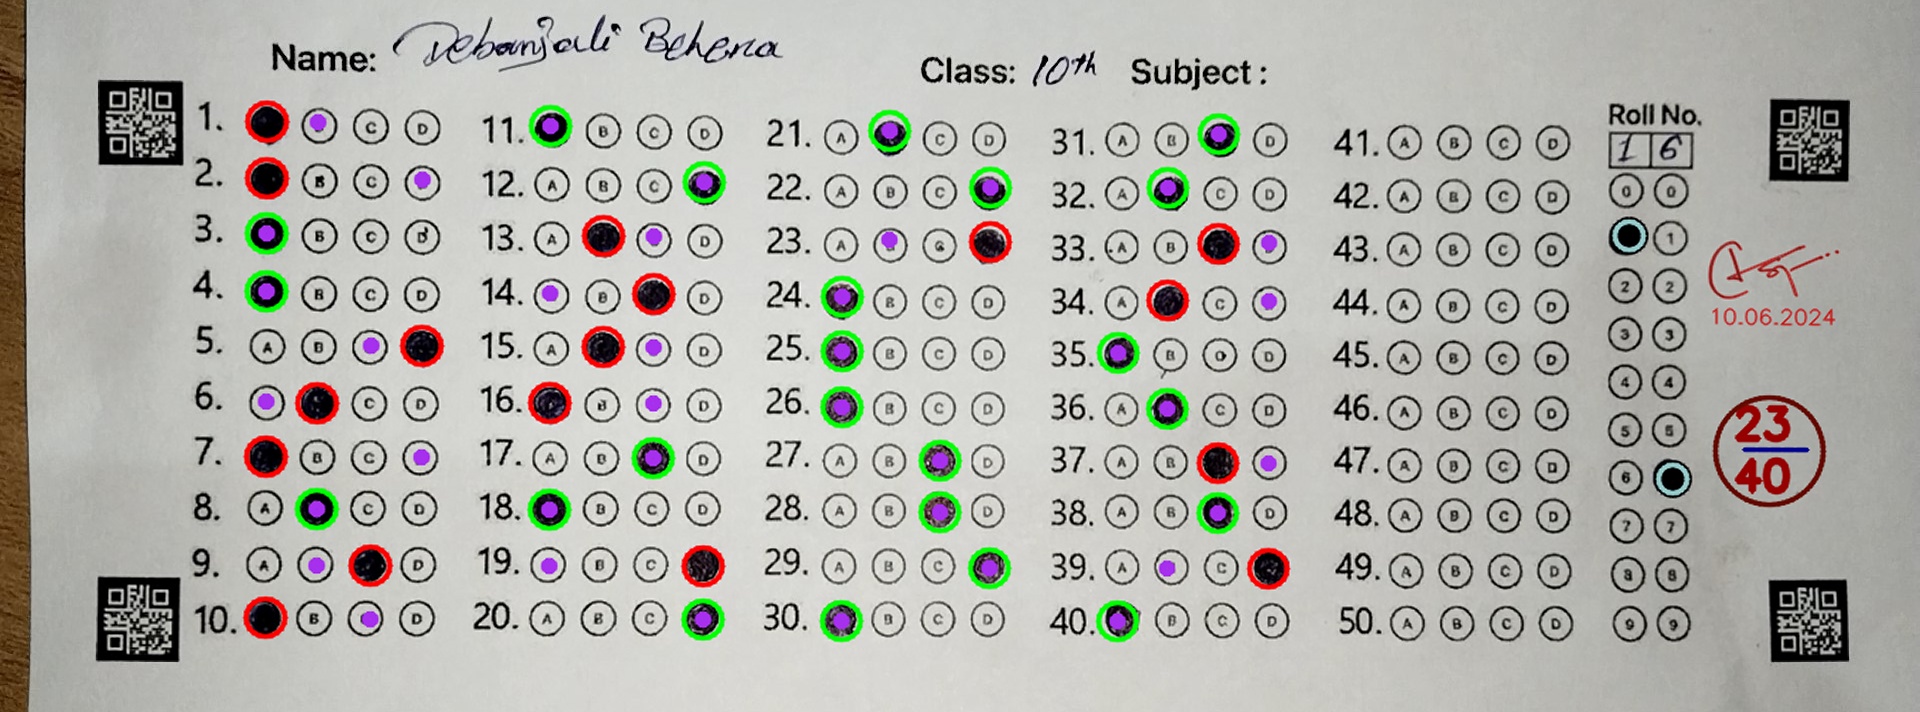 Name: Debanjali Behera
Class: 10th Subject:
Roll No.
1 6
1. C D
2. B C
3. B C D
4. B C D
5. A B
6. C D
7. B C
8. A C D
9. A D
10. B D
11. B C D
12. A B C
13. A D
14. B D
15. A D
16. B D
17. A B D
18. B C D
19. B C
20. A B C
21. A C D
22. A B C
23. A C
24. B C D
25. B C D
26. B C D
27. A B D
28. A B D
29. A B C
30. B C D
31. A B D
32. A C D
33. A B
34. A C
35. B C D
36. A C D
37. A B
38. A B D
39. A C
40. B C D
41. A B C D
42. A B C D
43. A B C D
44. A B C D
45. A B C D
46. A B C D
47. A B C D
48. A B C D
49. A B C D
50. A B C D
0 0
1
2 2
3 3
4 4
5 5
6
7 7
8 8
9 9
10.06.2024
23
40